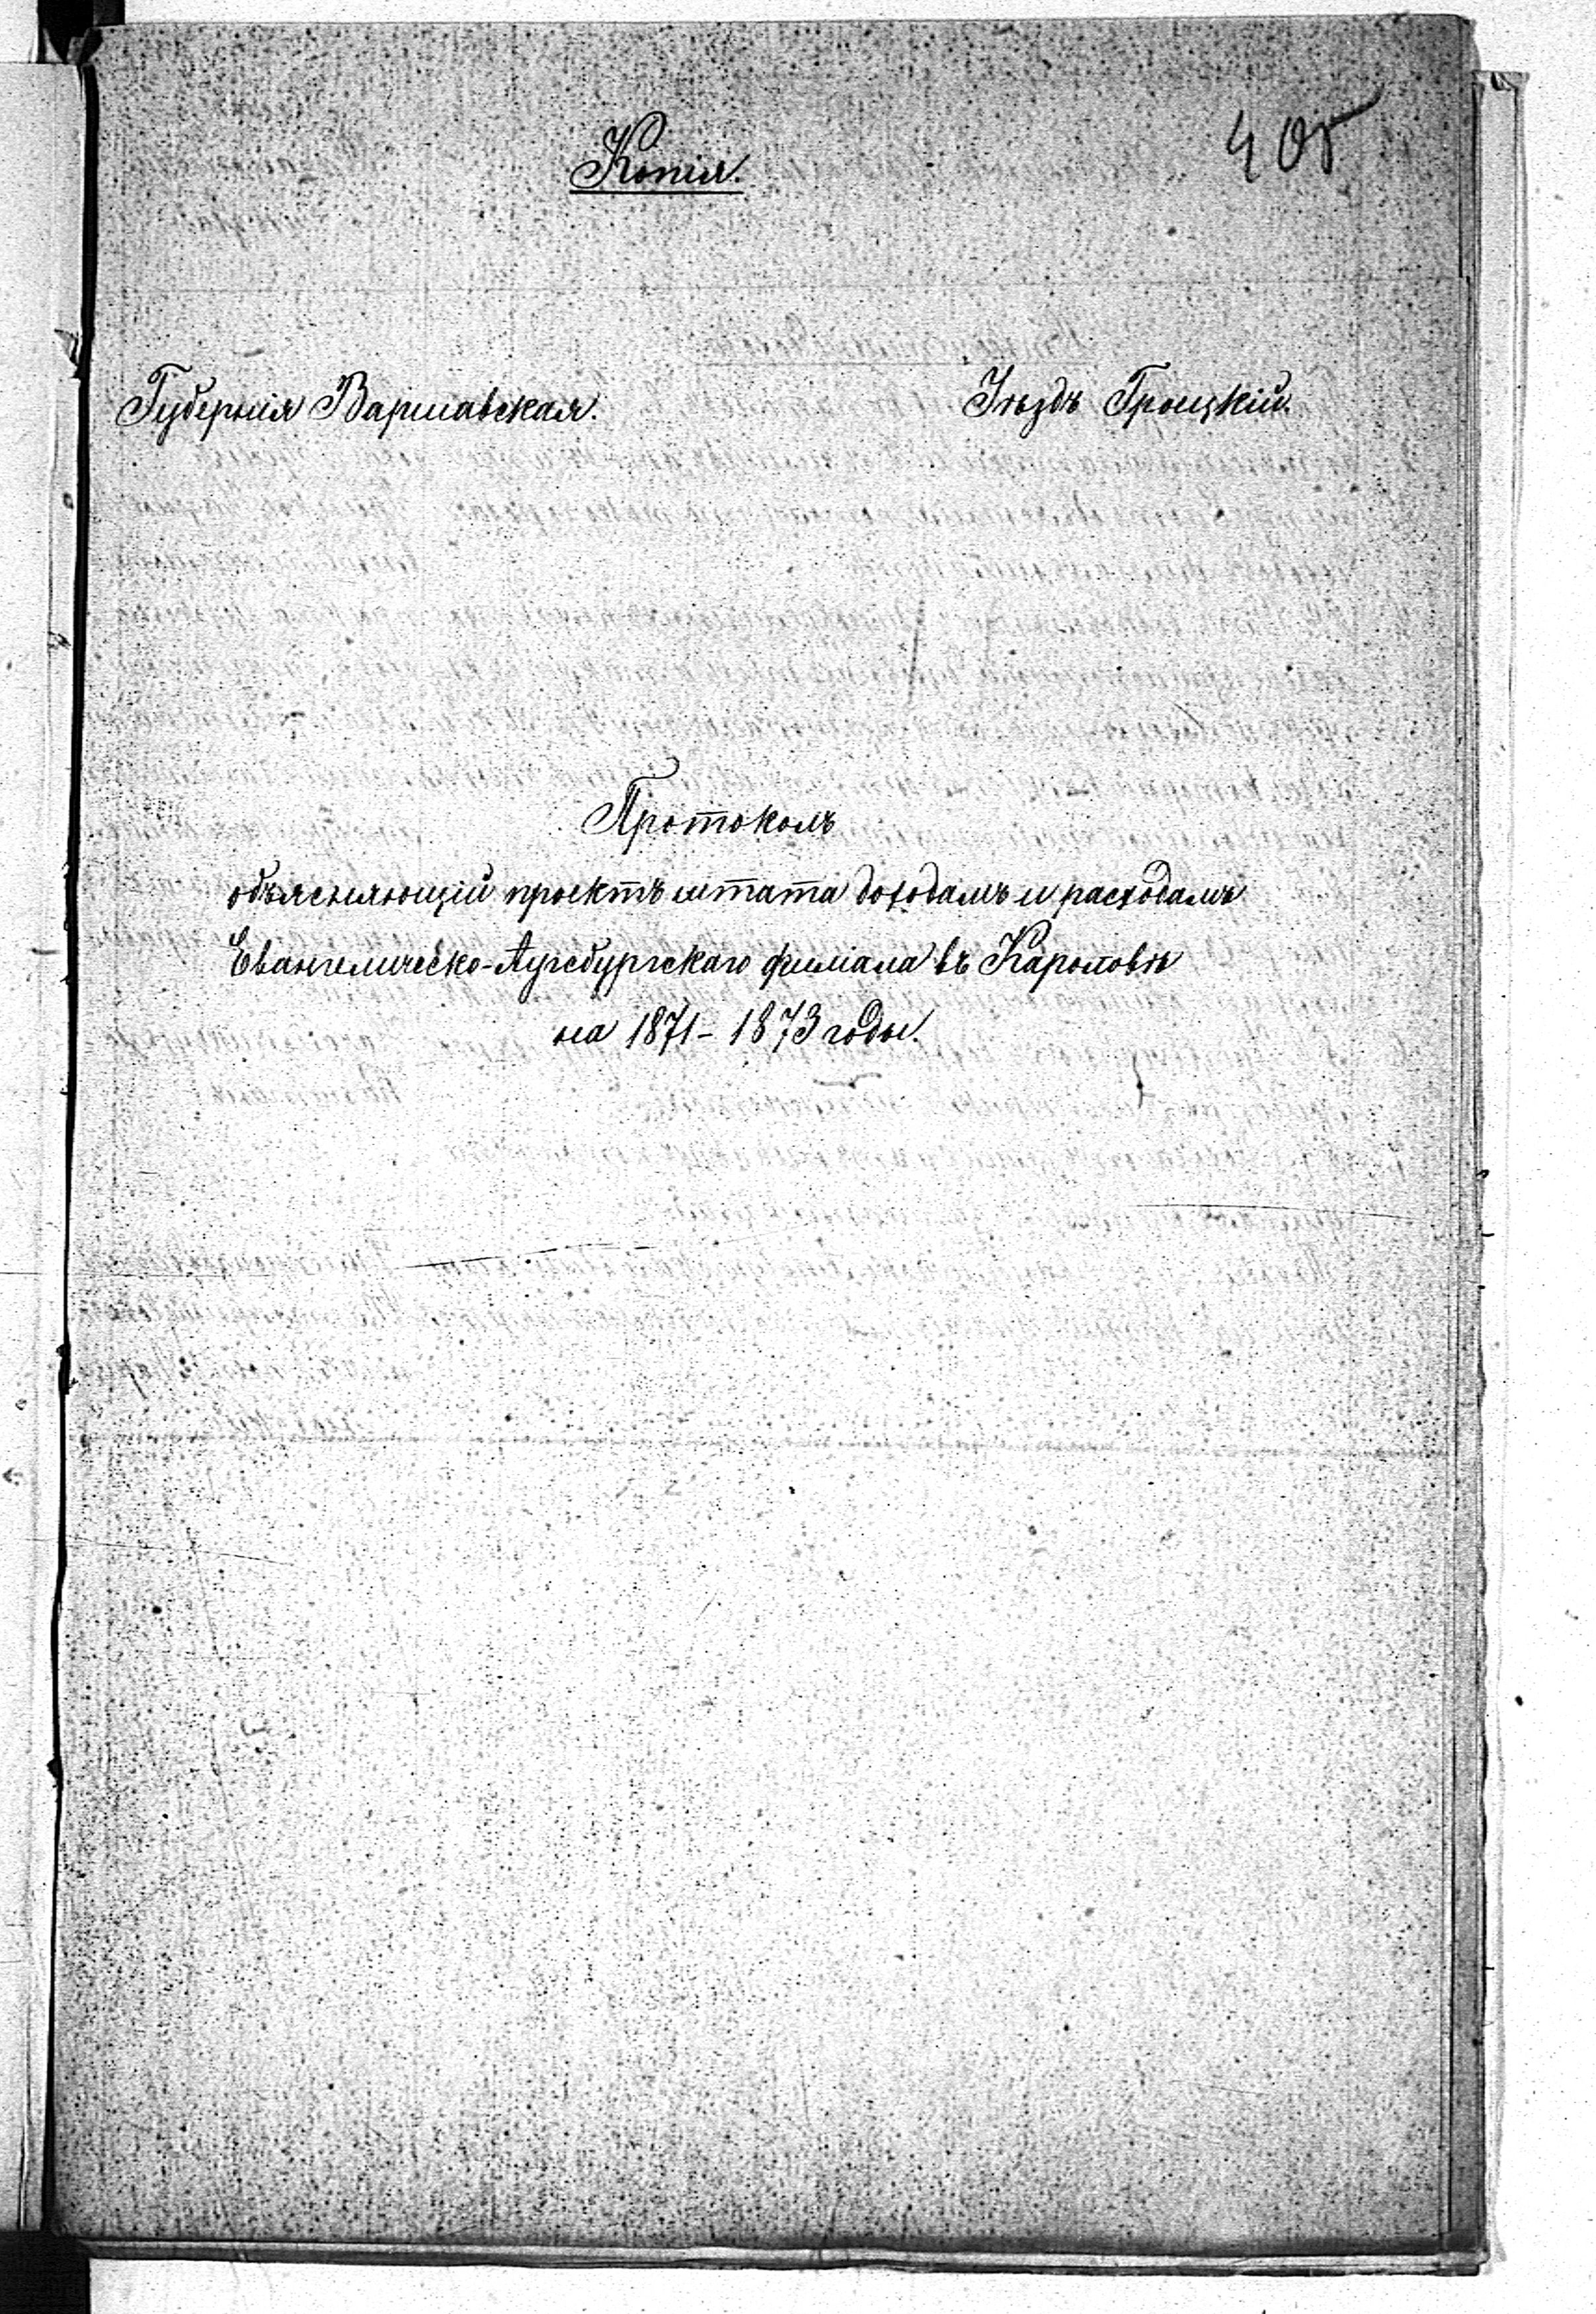 405
Копія.
Губернія Варшавская. Уѣздъ Гроецкій.
Протоколъ
объясняющій проектъ штата доходамъ и расходамъ
Евангелическо-Аугсбургскаго филіала въ Карпловѣ
на 1871-1873 годы.